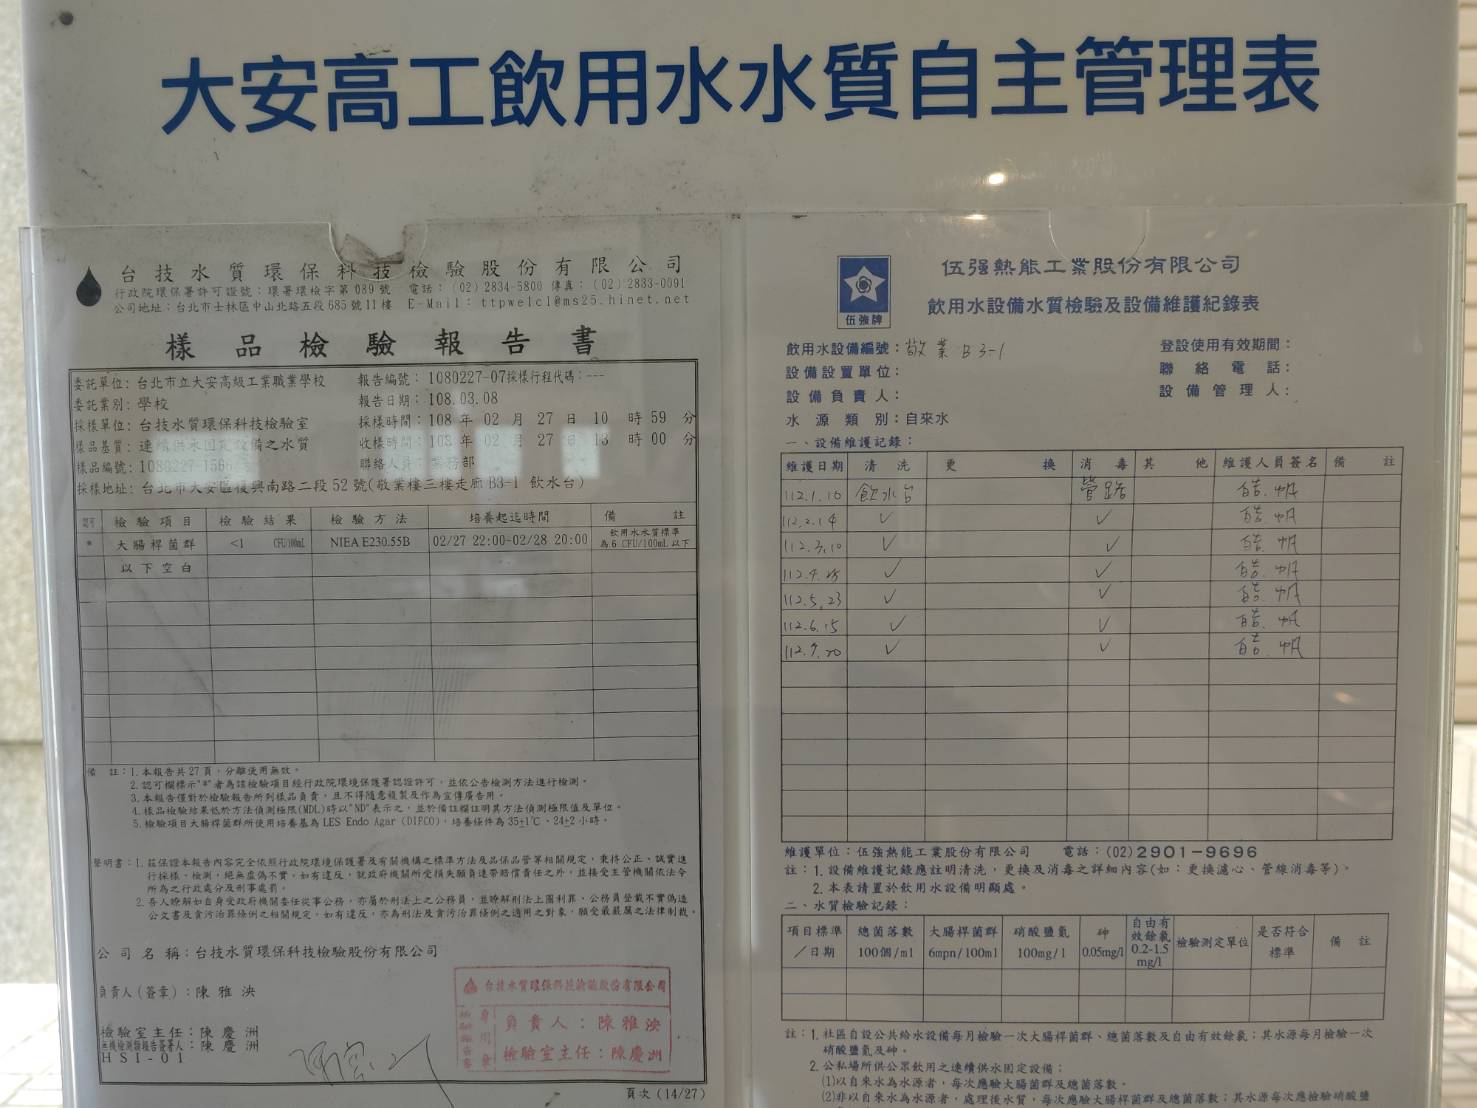 大安高工飲用水水質自主管理表
台技水質環保科技檢驗股份有限公司
行政院環保署許可證號：環署環檢字第089號 電話：(02)2834-5800 傳真：(02)2833-0091
公司地址：台北市士林區中山北路五段685號11樓 E-Mail：ttpwelcl@ms25.hinet.net
樣品檢驗報告書
委託單位：台北市立大安高級工業職業學校 報告編號：1080227-07採樣行程代碼：---
委託業別：學校 報告日期：108.03.08
採樣單位：台技水質環保科技檢驗室 採樣時間：108 年 02 月 27 日 10 時 59 分
樣品基質：連續供水固定設備之水質 收樣時間：108 年 02 月 27 日 13 時 00 分
樣品編號：1080227-1566 聯絡人員：業務部
採樣地址：台北市大安區復興南路二段52號(敬業樓三樓走廊B3-1 飲水台)
認可 檢驗項目 檢驗結果 檢驗方法 培養起迄時間 備註
* 大腸桿菌群 <1 CFU/100mL NIEA E230.55B 02/27 22:00-02/28 20:00 飲用水水質標準為6 CFU/100mL以下
以下空白
備 註：1.本報告共27頁，分離使用無效。
2.認可欄標示"*"者為該檢驗項目經行政院環境保護署認證許可，並依公告檢測方法進行檢測。
3.本報告僅對於檢驗報告所列樣品負責，且不得隨意複製及作為宣傳廣告用。
4.樣品檢驗結果低於方法偵測極限(MDL)時以"ND"表示之，並於備註欄註明其方法偵測極限值及單位。
5.檢驗項目大腸桿菌群所使用培養基為LES Endo Agar (DIFCO)，培養條件為35±1℃、24±2小時。
聲明書：1.茲保證本報告內容完全依照行政院環境保護署及有關機構之標準方法及品保品管等相關規定，秉持公正、誠實進
行採樣、檢測，絕無虛偽不實。如有違反，就政府機關所受損失願負連帶賠償責任之外，並接受主管機關依法令
所為之行政處分及刑事處罰。
2.吾人瞭解如自身受政府機關委任從事公務，亦屬於刑法上之公務員，並瞭解刑法上圖利罪、公務員登載不實偽造
公文書及貪污治罪條例之相關規定，如有違反，亦為刑法及貪污治罪條例之適用之對象，願受最嚴厲之法律制裁。
公司名稱：台技水質環保科技檢驗股份有限公司
負責人(簽章)：陳雅泱
檢驗室主任：陳慶洲
無機檢測類報告簽署人：陳慶洲
HSI-01
台技水質環保科技檢驗股份有限公司
負責人：陳雅泱
檢驗室主任：陳慶洲
頁次 (14/27)
伍強牌
伍強熱能工業股份有限公司
飲用水設備水質檢驗及設備維護紀錄表
飲用水設備編號：敬業 B3-1 登設使用有效期間：
設備設置單位： 聯絡電話：
設備負責人： 設備管理人：
水源類別：自來水
一、設備維護記錄：
維護日期 清洗 更換 消毒 其他 維護人員簽名 備註
112.1.10 飲水台 管路 皓帆
112.2.14 ✓ ✓ 皓帆
112.3.10 ✓ ✓ 皓帆
112.4.25 ✓ ✓ 皓帆
112.5.23 ✓ ✓ 皓帆
112.6.15 ✓ ✓ 皓帆
112.7.20 ✓ ✓ 皓帆
維護單位：伍強熱能工業股份有限公司 電話：(02)2901-9696
註：1.設備維護記錄應註明清洗、更換及消毒之詳細內容(如：更換濾心、管線消毒等)。
2.本表請置於飲用水設備明顯處。
二、水質檢驗記錄：
項目標準／日期 總菌落數100個/ml 大腸桿菌群6mpn/100ml 硝酸鹽氮100mg/l 砷0.05mg/l 自由有效餘氯0.2-1.5mg/l 檢驗測定單位 是否符合標準 備註
註：1.社區自設公共給水設備每月檢驗一次大腸桿菌群、總菌落數及自由有效餘氯；其水源每月檢驗一次
硝酸鹽氮及砷。
2.公私場所供公眾飲用之連續供水固定設備：
(1)以自來水為水源者，每次應驗大腸桿菌群及總菌落數。
(2)非以自來水為水源者，處理後水質，每次應驗大腸桿菌群及總菌落數；其水源每次應檢驗硝酸鹽